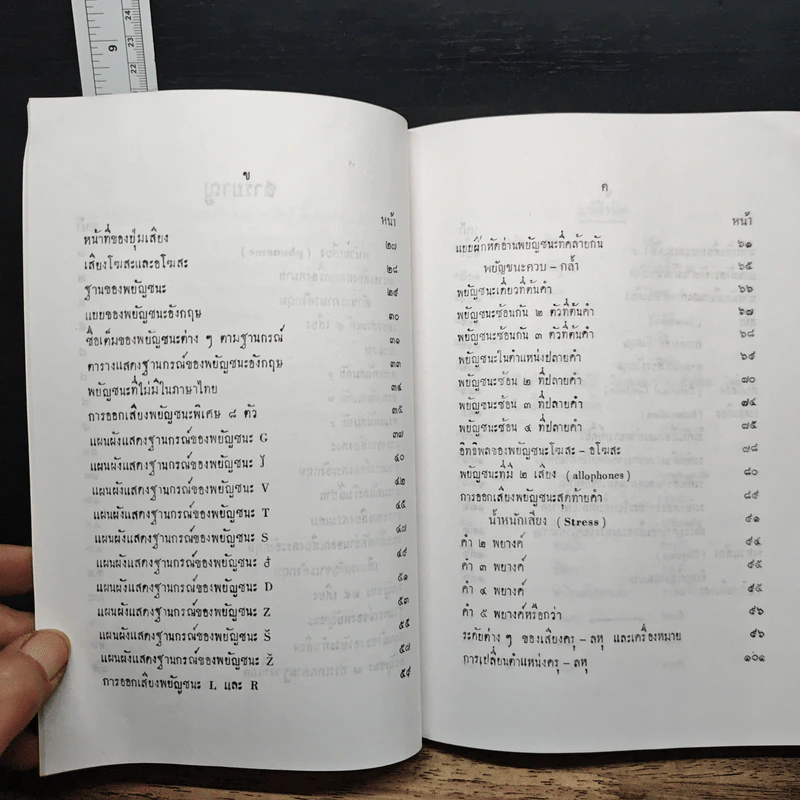 ข
หน้า
หน้าที่ของยุ่มเสียง ๒๗
เสียงโฆสะและอโฆสะ ๒๘
ฐานของพยัญชนะ ๒๙
แบบของพยัญชนะอังกฤษ ๓๐
ชื่อเต็มของพยัญชนะต่าง ๆ ตามฐานกรณ์ ๓๑
ตารางแสดงฐานกรณ์ของพยัญชนะอังกฤษ ๓๓
พยัญชนะที่ไม่มีในภาษาไทย ๓๔
การออกเสียงพยัญชนะพิเศษ ๘ ตัว ๓๕
แผนผังแสดงฐานกรณ์ของพยัญชนะ G ๓๗
แผนผังแสดงฐานกรณ์ของพยัญชนะ J̌ ๔๐
แผนผังแสดงฐานกรณ์ของพยัญชนะ V ๔๒
แผนผังแสดงฐานกรณ์ของพยัญชนะ T ๔๕
แผนผังแสดงฐานกรณ์ของพยัญชนะ S ๔๗
แผนผังแสดงฐานกรณ์ของพยัญชนะ ๔๙
แผนผังแสดงฐานกรณ์ของพยัญชนะ D ๕๑
แผนผังแสดงฐานกรณ์ของพยัญชนะ Z ๕๓
แผนผังแสดงฐานกรณ์ของพยัญชนะ Š ๕๕
แผนผังแสดงฐานกรณ์ของพยัญชนะ Ž ๕๗
การออกเสียงพยัญชนะ L และ R ๕๙
ค
หน้า
แบบฝึกหัดอ่านพยัญชนะที่คล้ายกัน ๖๑
พยัญชนะควบ – กล้ำ ๖๕
พยัญชนะเดี่ยวที่ต้นคำ ๖๖
พยัญชนะซ้อนกัน ๒ ตัวที่ต้นคำ ๖๗
พยัญชนะซ้อนกัน ๓ ตัวที่ต้นคำ ๖๘
พยัญชนะในตำแหน่งปลายคำ ๖๙
พยัญชนะซ้อน ๒ ที่ปลายคำ ๗๐
พยัญชนะซ้อน ๓ ที่ปลายคำ ๗๔
พยัญชนะซ้อน ๔ ที่ปลายคำ ๗๕
อิทธิพลของพยัญชนะโฆสะ – อโฆสะ ๗๘
พยัญชนะที่มี ๒ เสียง (allophones) ๘๐
การออกเสียงพยัญชนะสุดท้ายคำ ๘๙
น้ำหนักเสียง (Stress) ๙๑
คำ ๒ พยางค์ ๙๔
คำ ๓ พยางค์ ๙๕
คำ ๔ พยางค์ ๙๕
คำ ๕ พยางค์หรือกว่า ๙๖
ระดับต่าง ๆ ของเสียงครุ – ลหุ และเครื่องหมาย ๙๖
การเปลี่ยนตำแหน่งครุ – ลหุ ๑๐๑
24
9
23
22